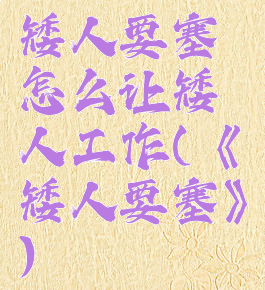 矮人要塞
怎么让矮
人工作(《
矮人要塞》
)